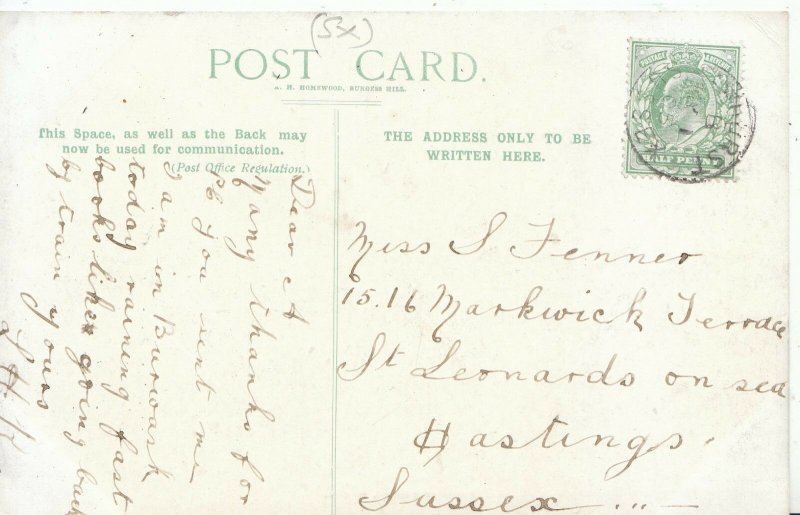 (SX)
POST CARD.
A. H. HOMEWOOD, BURGESS HILL.
This Space, as well as the Back may
now be used for communication.
(Post Office Regulation.)
THE ADDRESS ONLY TO BE
WRITTEN HERE.
POSTAGE REVENUE
HALF PENNY
Dear A
Many thanks for
PC you sent me
I am in Burwash
today raining fast
looks like going back
by train yours
Miss S Fenner
15.16 Markwick Terrace
St Leonards on sea
Hastings.
Sussex